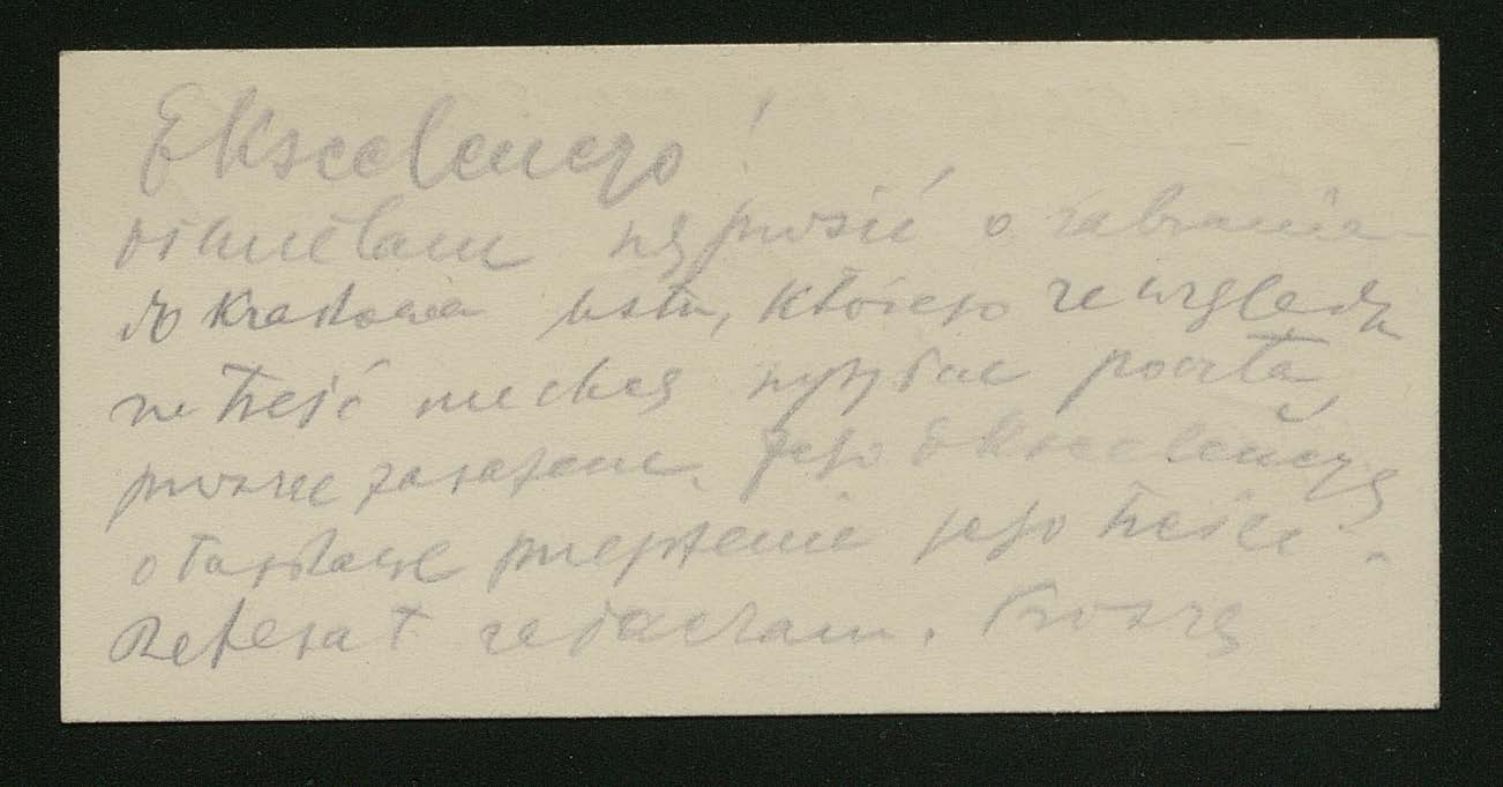 Ekscelencjo!
ośmielam się prosić o zabranie
do Krakowa listu, którego ze względu
na treść nie chcę wysyłać pocztą
prosząc zarazem Jego Ekscelencję
o łaskawe przejrzenie jego treści.
Referat załączam. Proszę